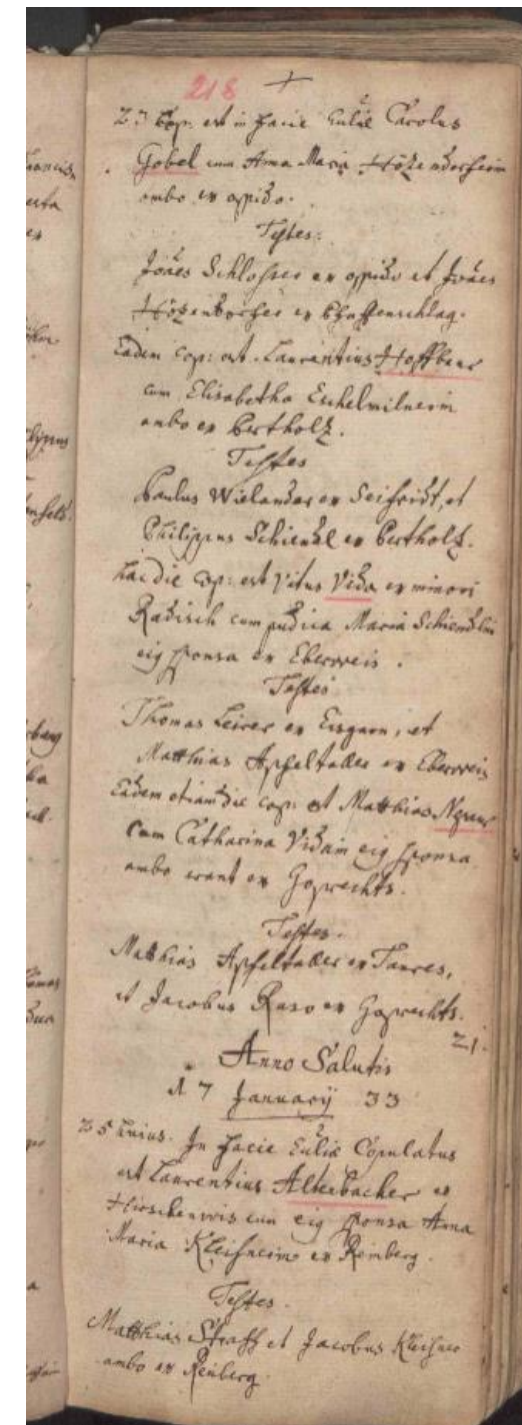 218
23 Cop: est in facie Eccliae Carolus
Gobel cum Anna Maria
ambo ex oppido.
Testes:
Joães Schlosser ex oppido et Joães
ex
Eadem cop: est Laurentius Hoffbaur
cum Elisabetha Eschelmilnerin
ambo ex Bertholz.
Testes
Paulus Wielander ex Seifridt, et
Philippus Schiendl ex Bertholz.
hac die cop: est Vitus Vida ex minori
Radisch cum pudica Maria
eig sponsa ex Eberweis.
Testes
Thomas Leirer ex Eisgarn, et
Matthias Apfeltaller ex Eberweis
Eadem etiam die cop: est Matthias
cum Catharina Vidain eig sponsa
ambo erant ex Goprechts.
Testes.
Matthias Apfeltaller ex Taures,
et Jacobus ex Goprechts.
21.
Anno Salutis
17 January 33
25 huius. In facie Eccliae Copulatus
est Laurentius Alterbacher ex
Hirschenwis cum eig sponsa Anna
Maria ex Reinberg.
Testes.
Matthias et Jacobus
ambo ex Reinberg.